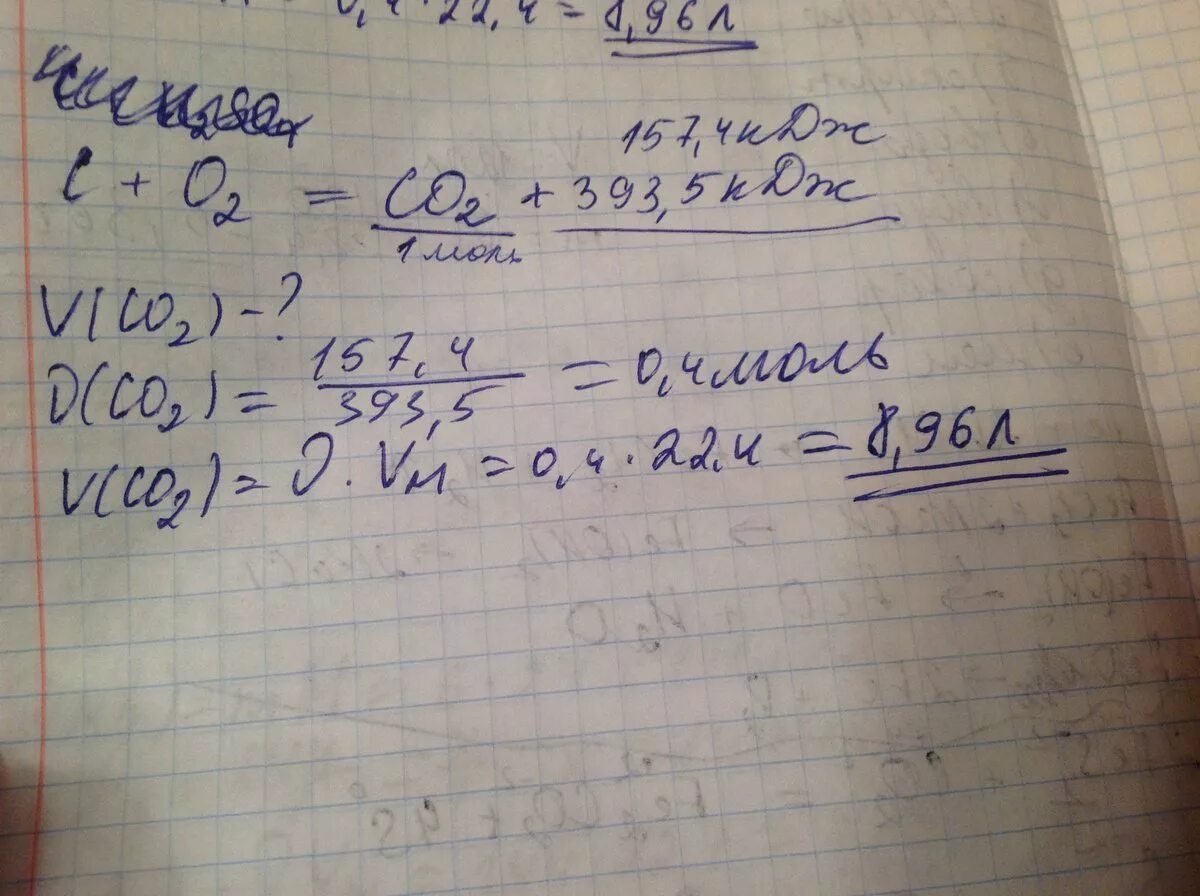 0,4·22,4 = 8,96 л
157,4 кДж
C + O₂ = CO₂ + 393,5 кДж
1 моль
V(CO₂) - ?
υ(CO₂) = 157,4 / 393,5 = 0,4 моль
V(CO₂) = υ · Vм = 0,4 · 22,4 = 8,96 л